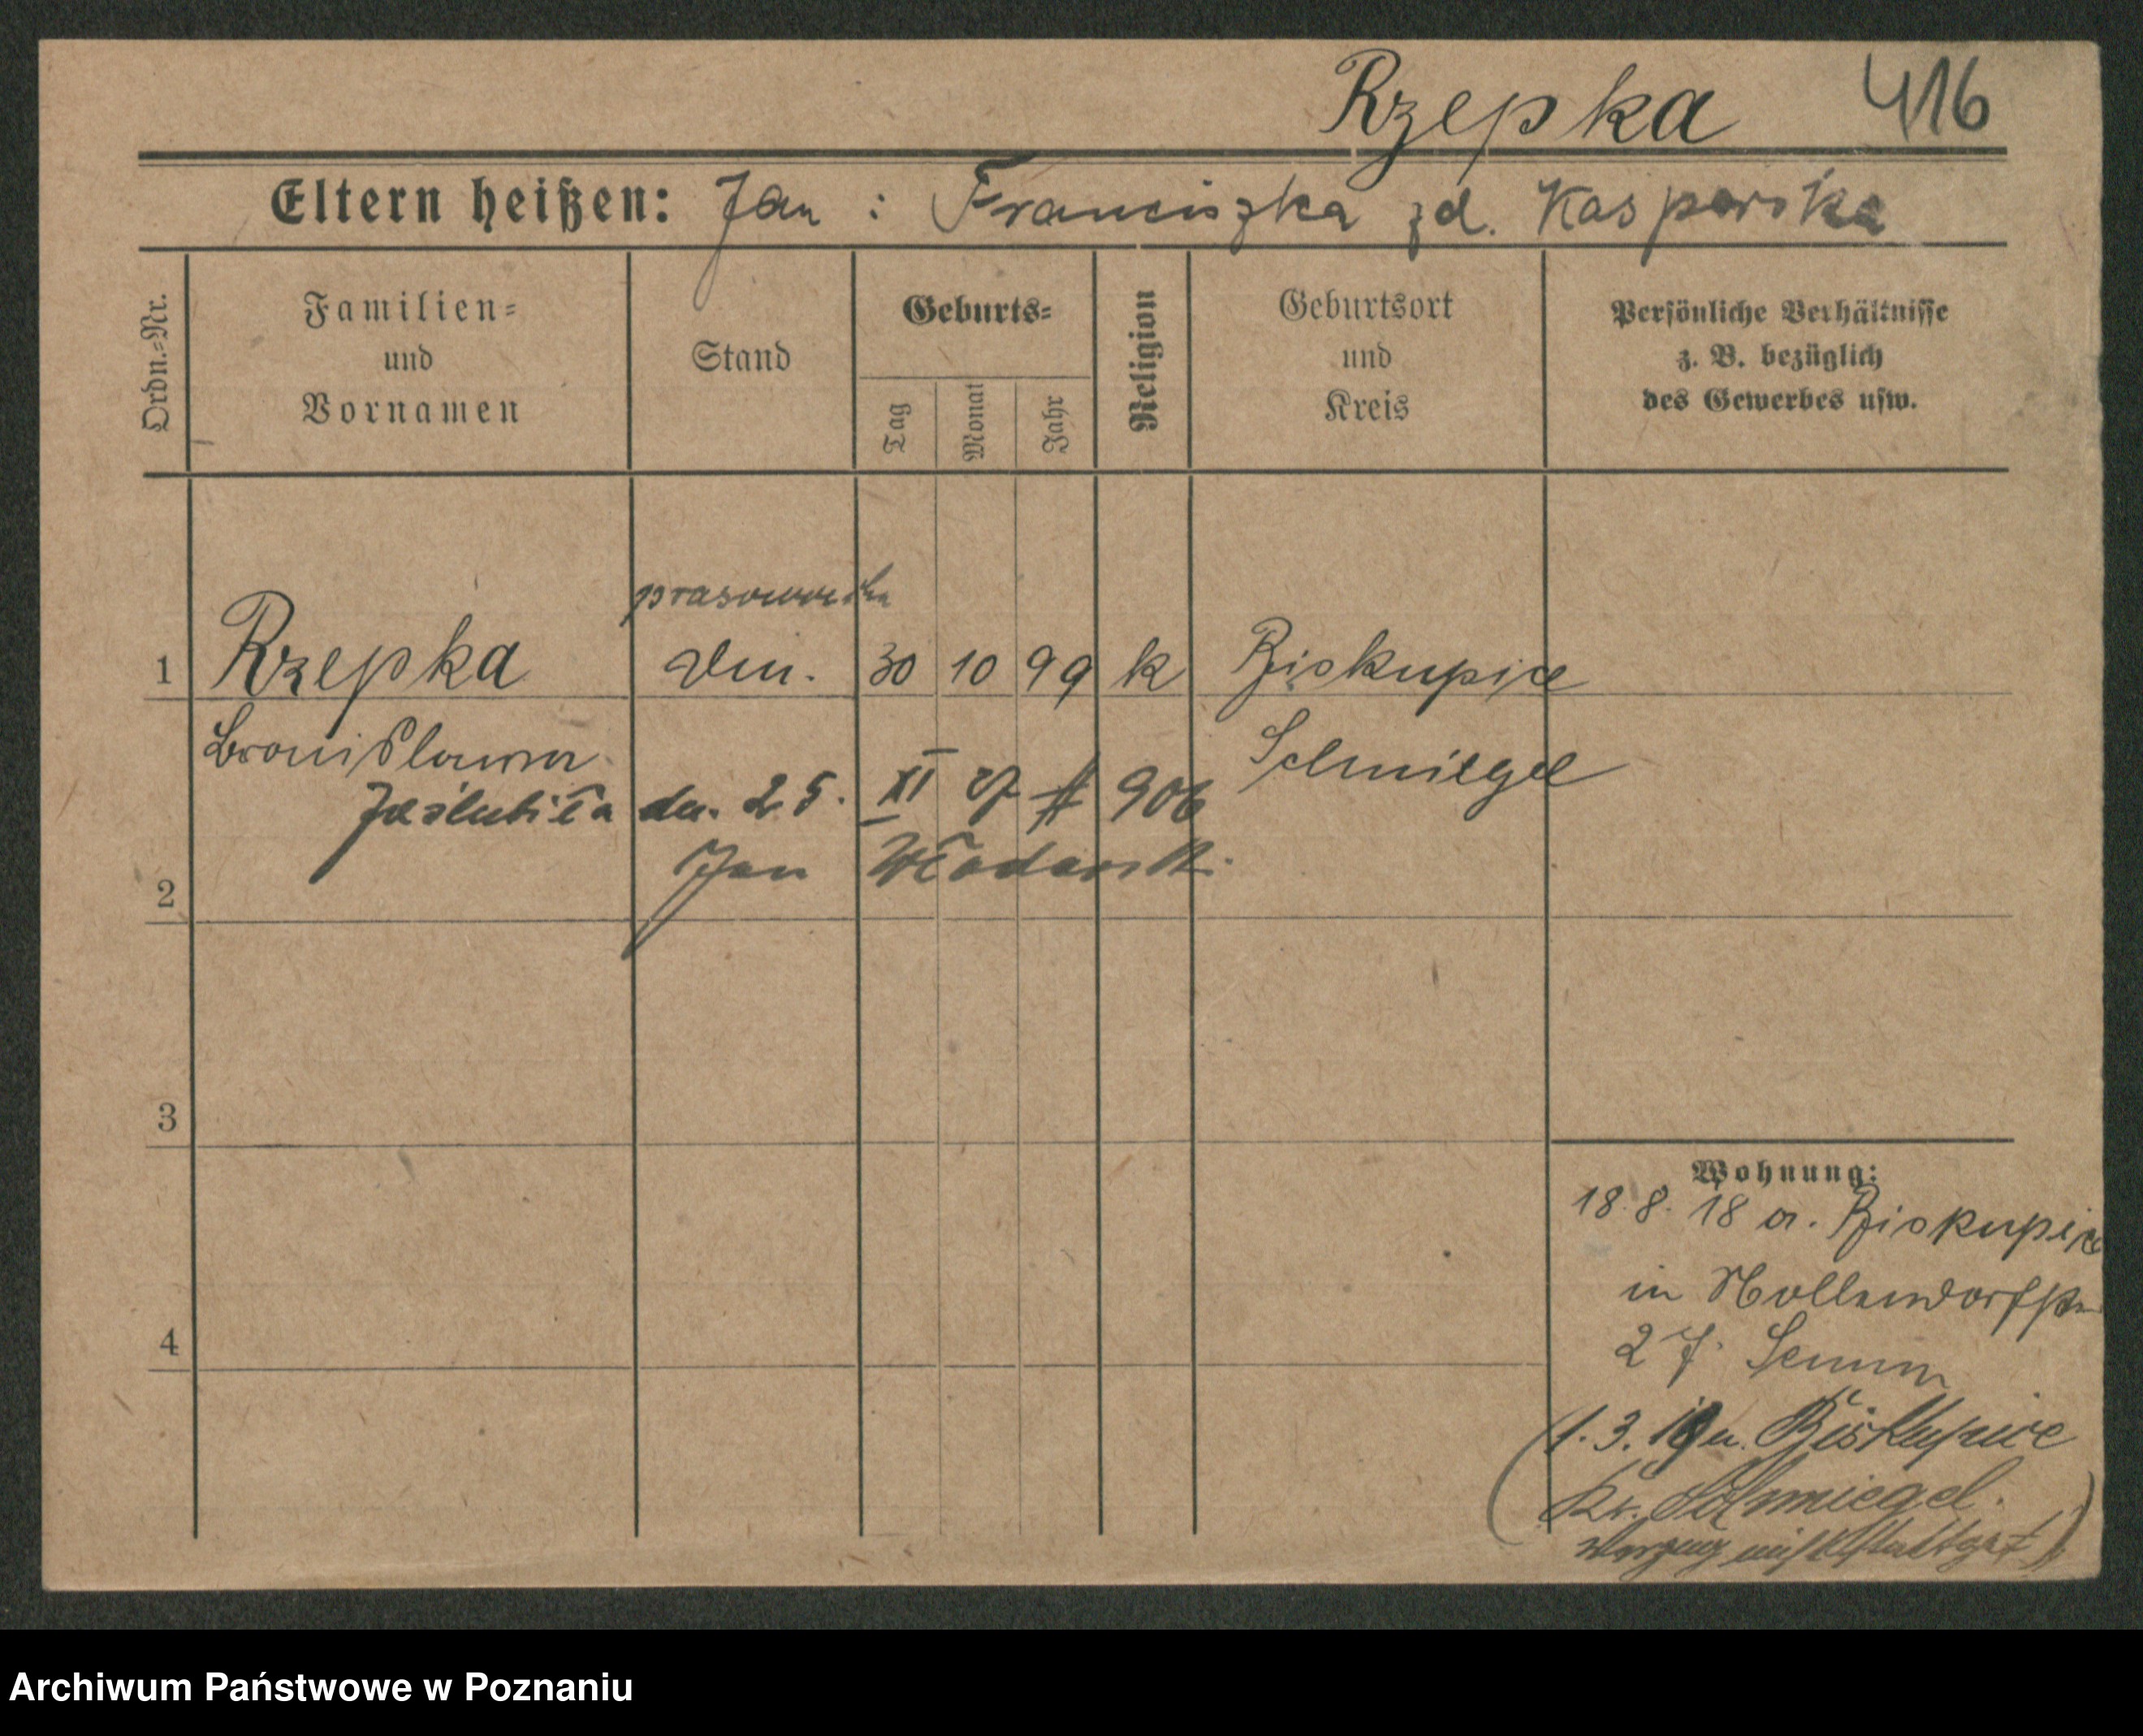 Rzepka 416
Eltern heißen: Jan i Franciszka zd. Kasperska
Ordn.-Nr.
Familien-
und
Vornamen
Stand
Geburts-
Tag
Monat
Jahr
Religion
Geburtsort
und
Kreis
Persönliche Verhältnisse
z. B. bezüglich
des Gewerbes usw.
1 Rzepka 30 10 99 k Biskupice
Schmiegel
Zaślubiła dn. 25. XI 906
Jan
2
3
4
Wohnung:
18.8.18 a. Biskupice
in
27.
1.3.19 n. Biskupice
Kr. Schmiegel.
Archiwum Państwowe w Poznaniu